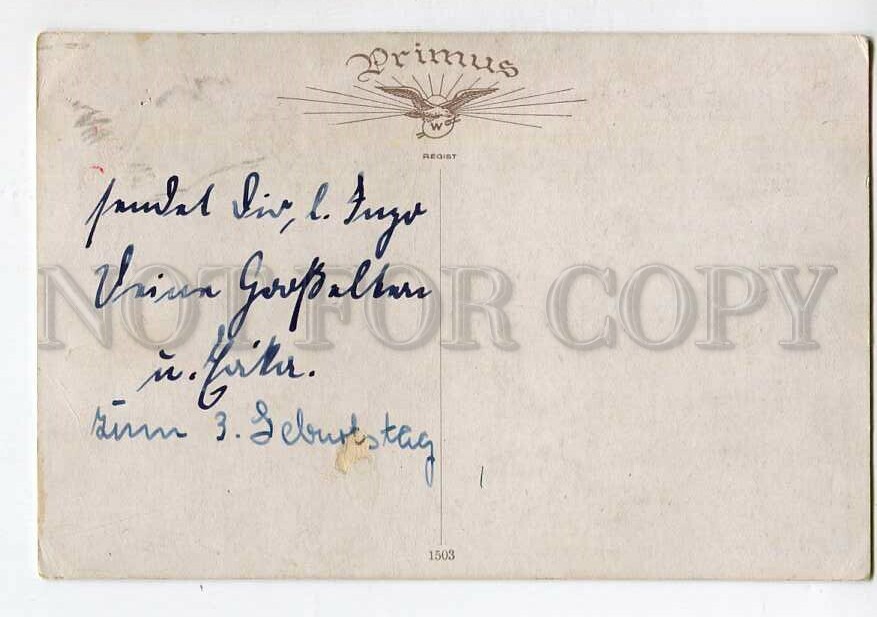 Primus
W
REGIST
sendet Dir, l. Ingo
Deine Großeltern
u. Erika.
zum 3. Geburtstag
NOT FOR COPY
1503